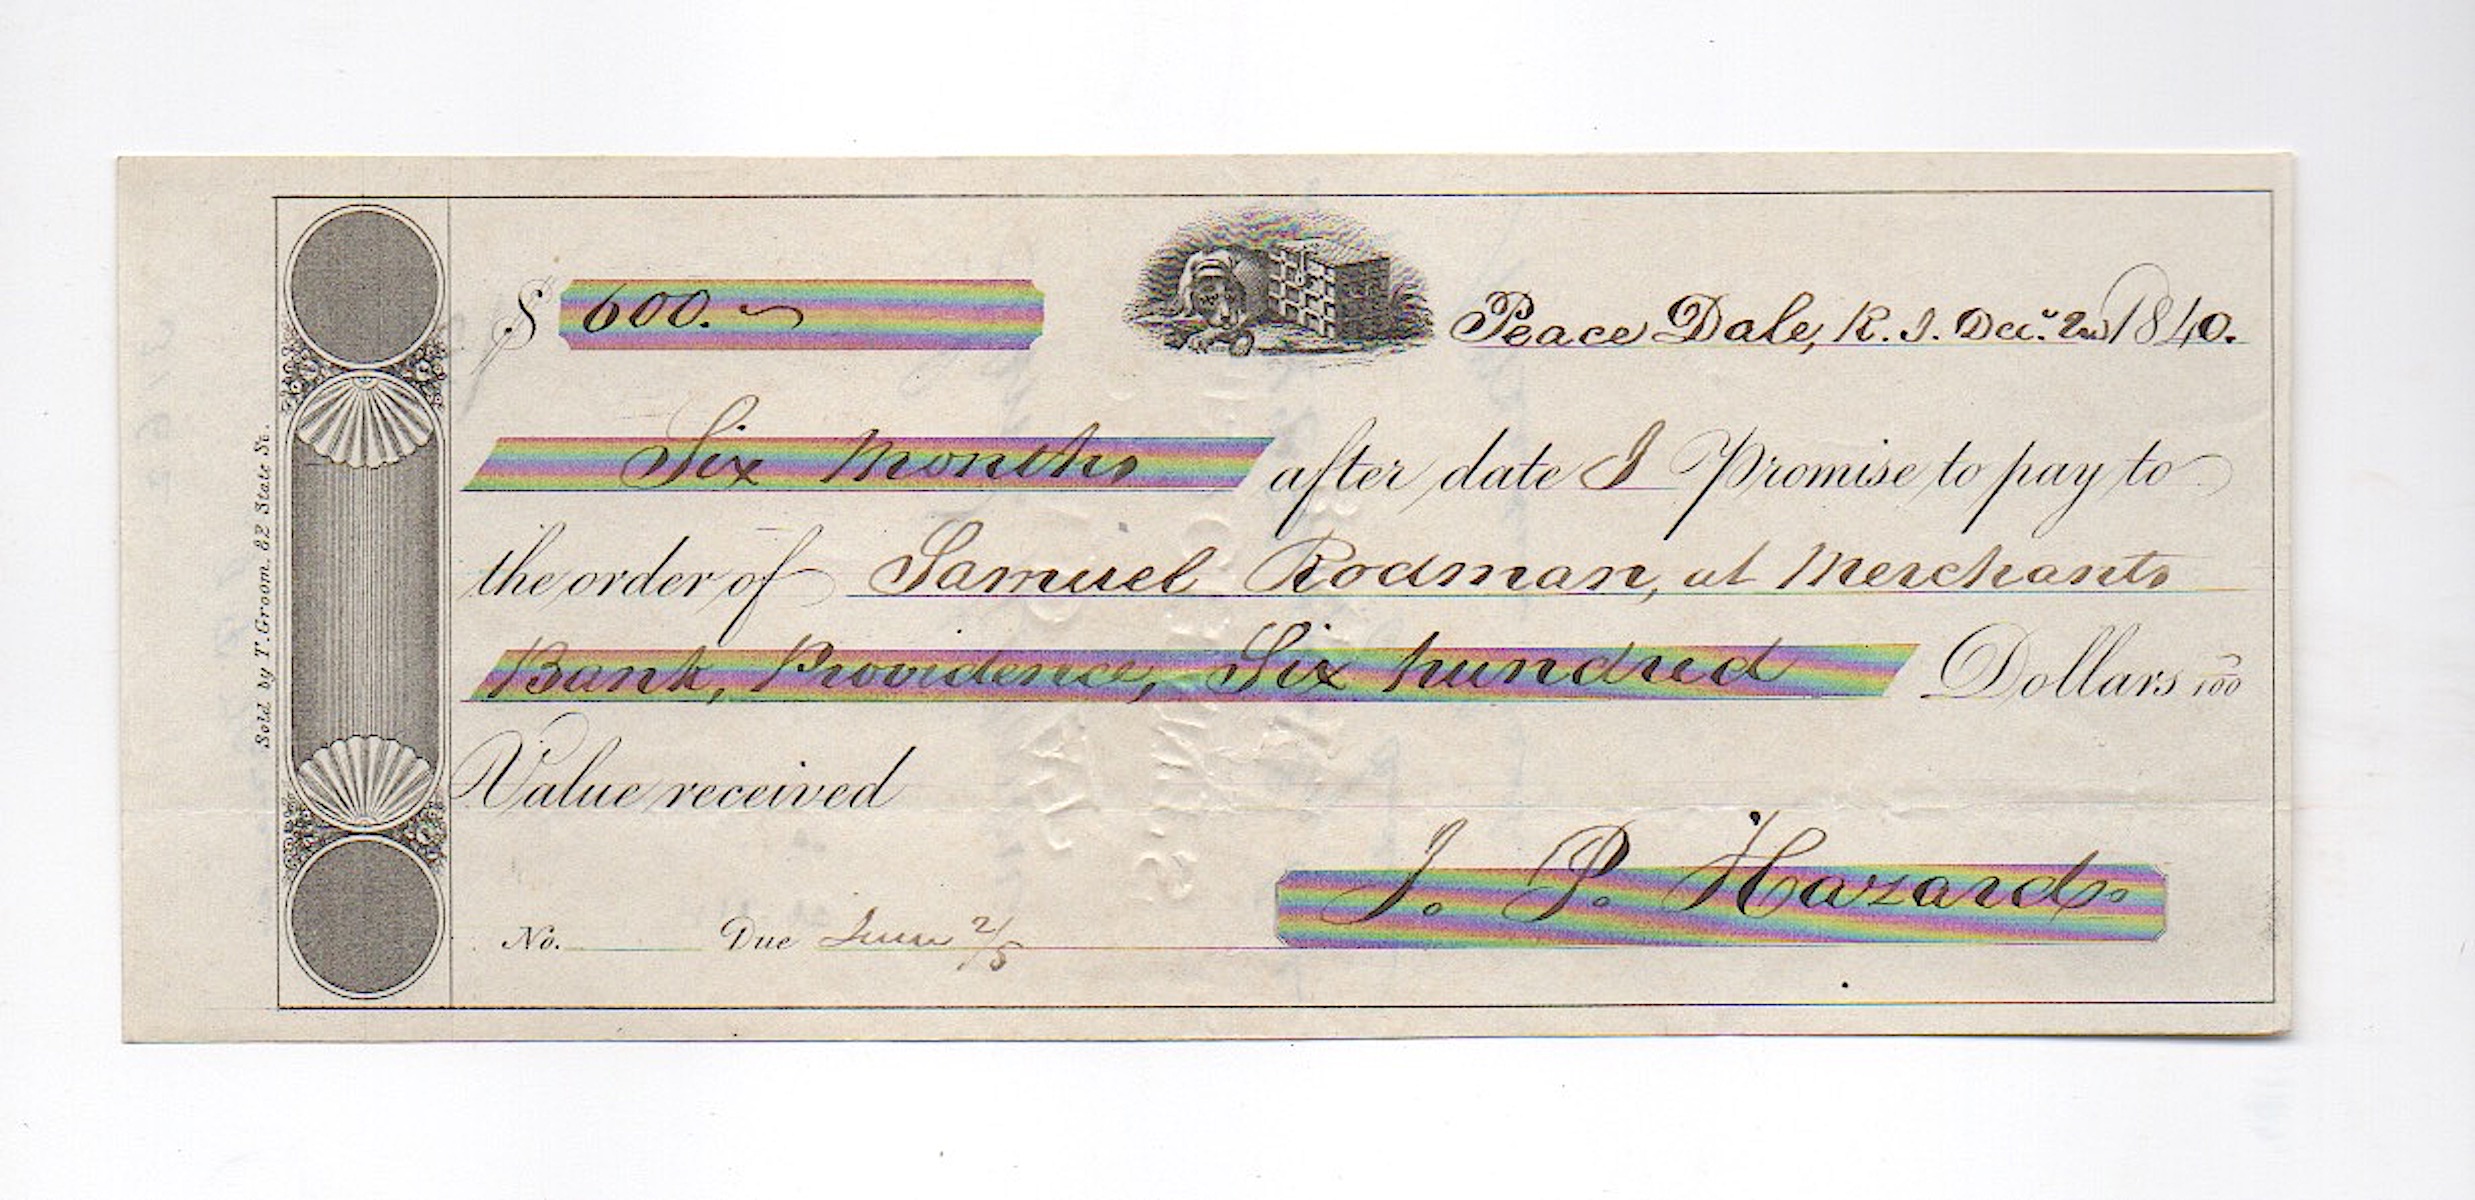 $ 600. ~
Peace Dale, R. I. Dec.r 2nd 1840.
Six Months after date I Promise to pay to
the order of Samuel Rodman, at Merchants
Bank, Providence, Six hundred Dollars /100
Value received
J. P. Hazard.
No. Due June 2/5
Sold by T. Groom, 82 State St.